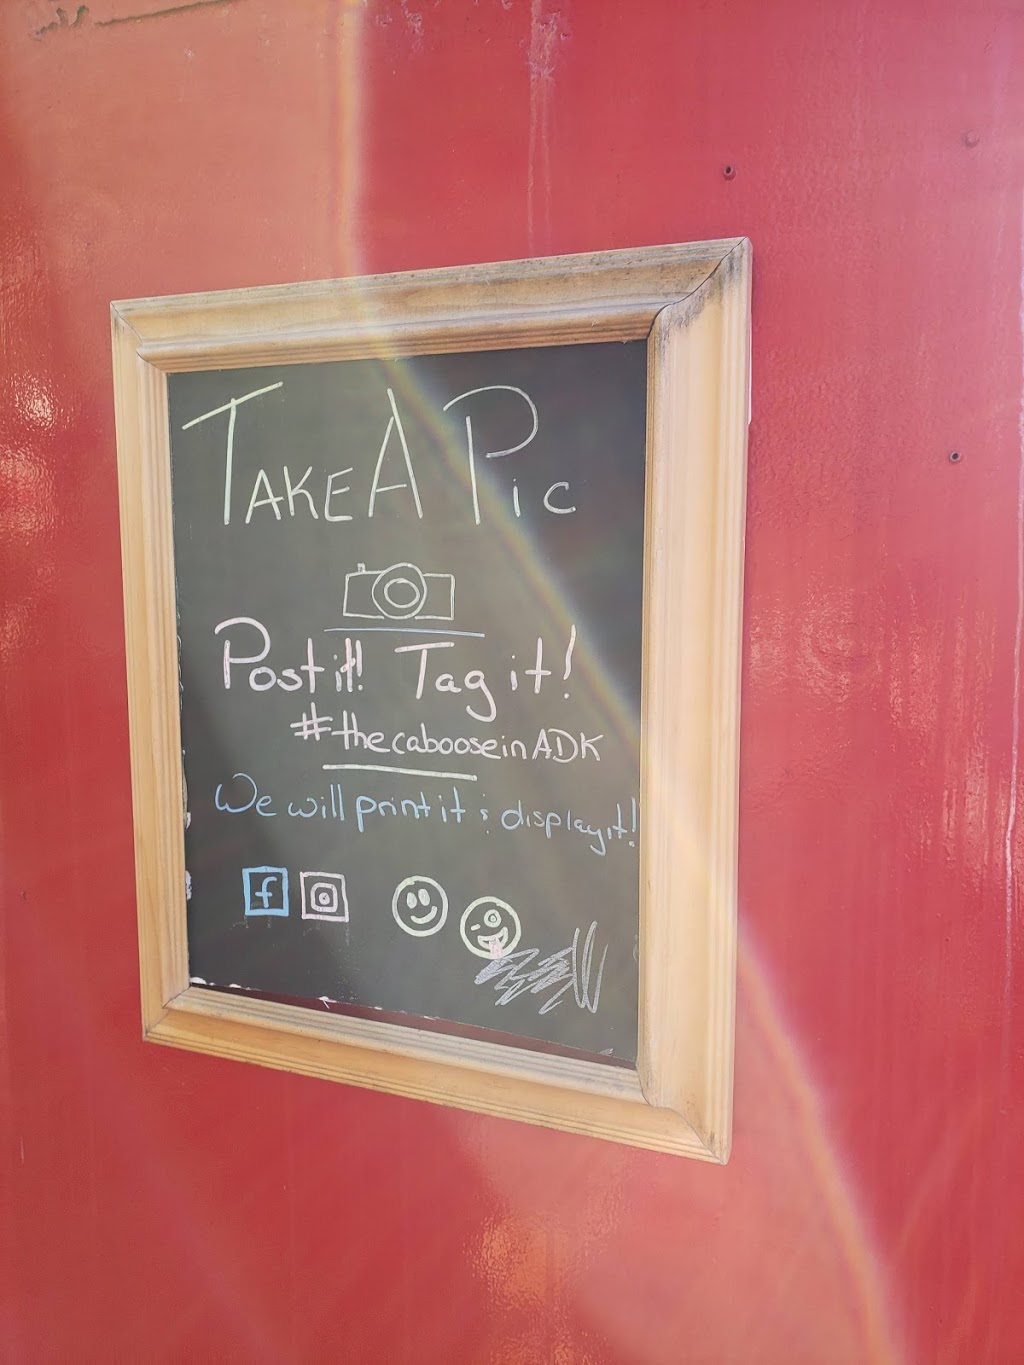 TAKE A PIC
Post it! Tag it!
#thecabooseinADK
We will print it & display it!
f